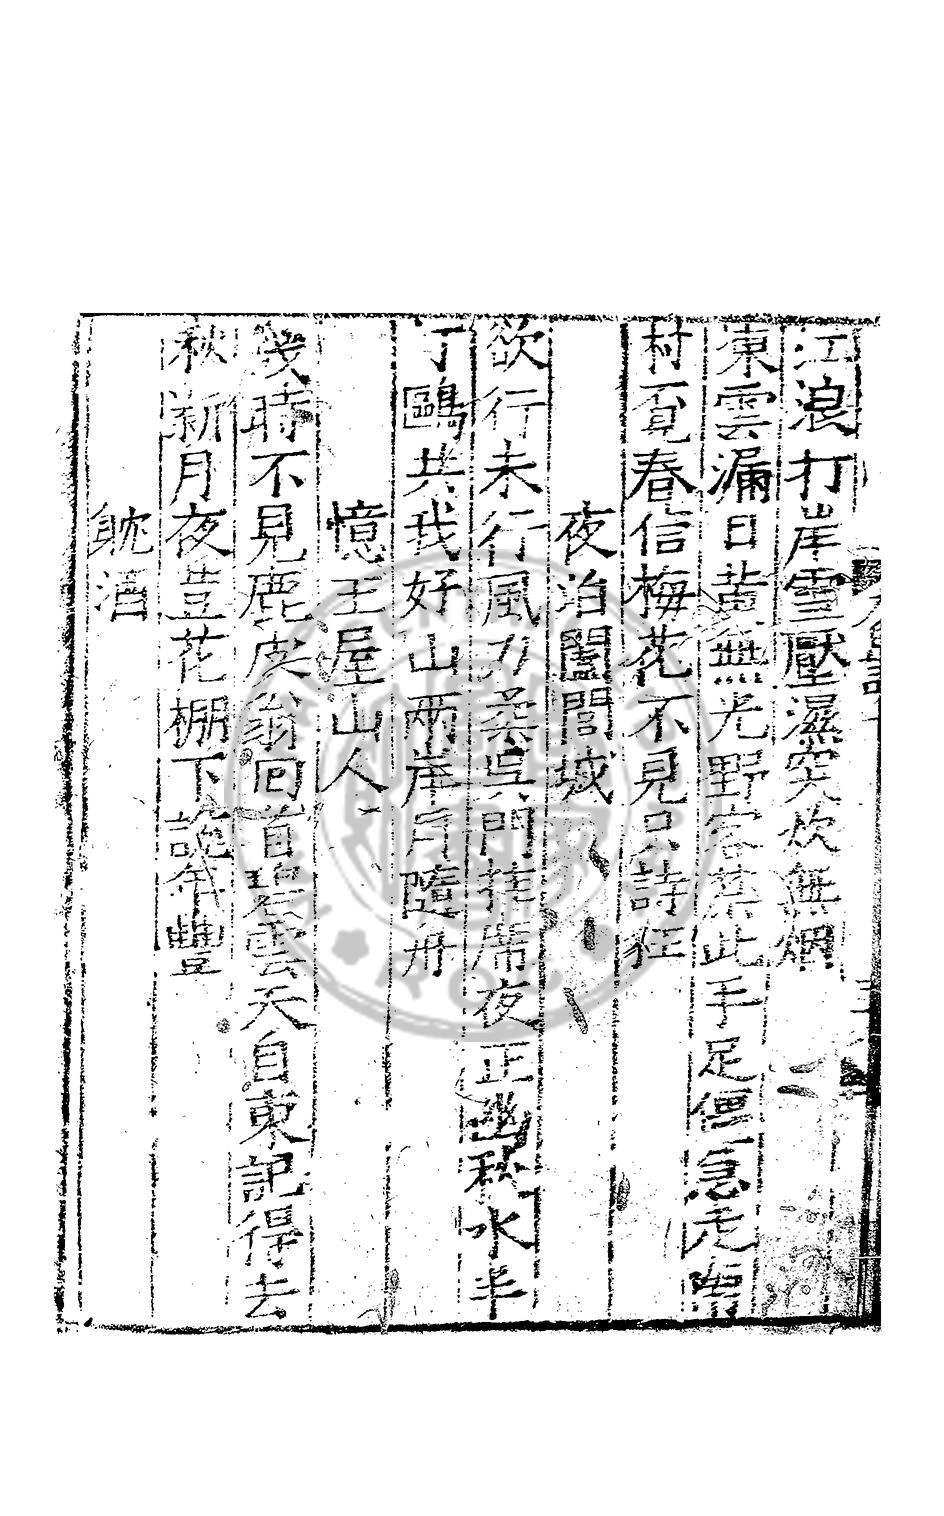 江浪打岸雪壓濕突炊無烟
凍雲漏日黃無光野客禁此手足僵急走南
村覓春信梅花不見只詩狂
夜泊闔閭城
欲行未行風力柔吳門挂席夜正幽秋水半
汀鷗共我好山兩岸月隨舟
憶王屋山人
幾時不見鹿皮翁回首碧雲天自東記得去
秋新月夜荳花棚下說年豐
耽酒